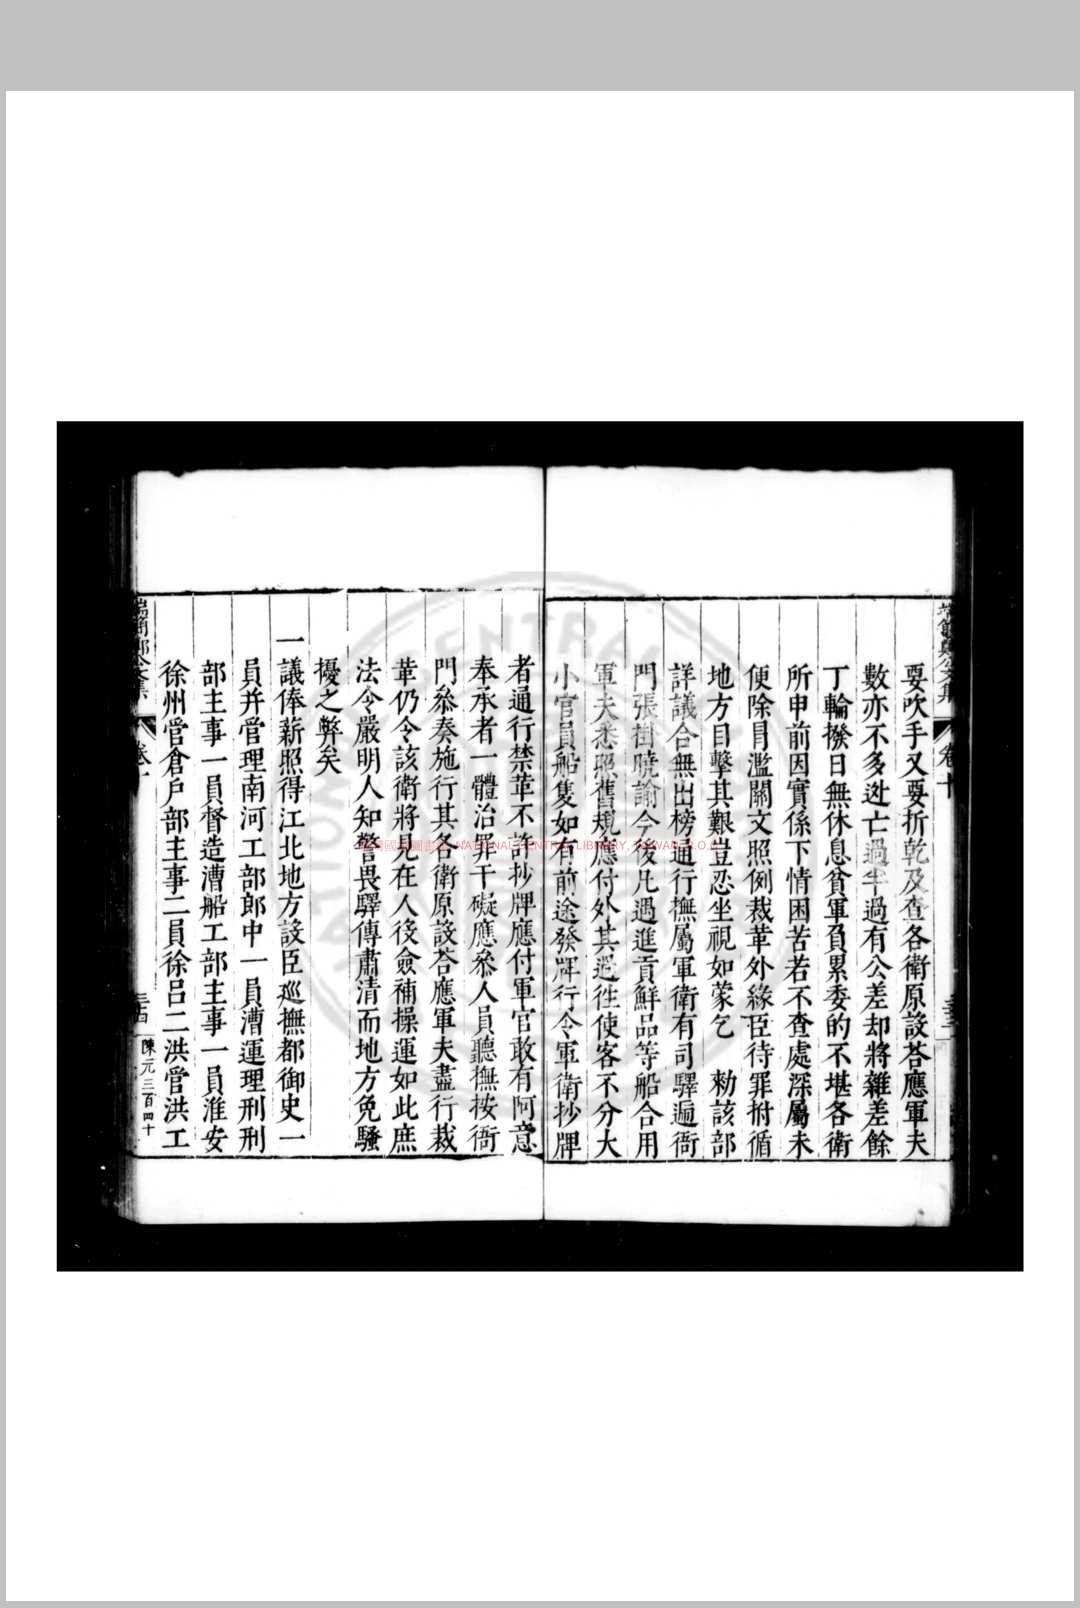 端簡鄭公文集
卷十
要吹手又要折乾及查各衛原設荅應軍夫
數亦不多迯亡過半過有公差却將雜差餘
丁輪撥日無休息貧軍負累委的不堪各衛
所申前因實係下情困苦若不查處深屬未
便除冐濫關文照例裁革外緣臣待罪拊循
地方目擊其艱豈忍坐視如蒙乞 勑該部
詳議合無出榜通行撫屬軍衛有司驛遞衙
門張掛曉諭今後凡遇進貢鮮品等船合用
軍夫悉照舊規應付外其過徃使客不分大
小官員船隻如有前途發牌行令軍衛抄牌
者通行禁革不許抄牌應付軍官敢有阿意
奉承者一體治罪干礙應叅人員聽撫按衙
門叅奏施行其各衛原設荅應軍夫盡行裁
革仍令該衛將見在人役僉補操運如此庶
法令嚴明人知警畏驛傳肅清而地方免騷
擾之弊矣
一議俸薪照得江北地方設臣巡撫都御史一
員并管理南河工部郎中一員漕運理刑刑
部主事一員督造漕船工部主事一員淮安
徐州管倉戶部主事二員徐呂二洪管洪工
端簡鄭公文集
卷十
三十四
陳元三百四十
NATIONAL CENTRAL LIBRARY, TAIWAN, R.O.C.